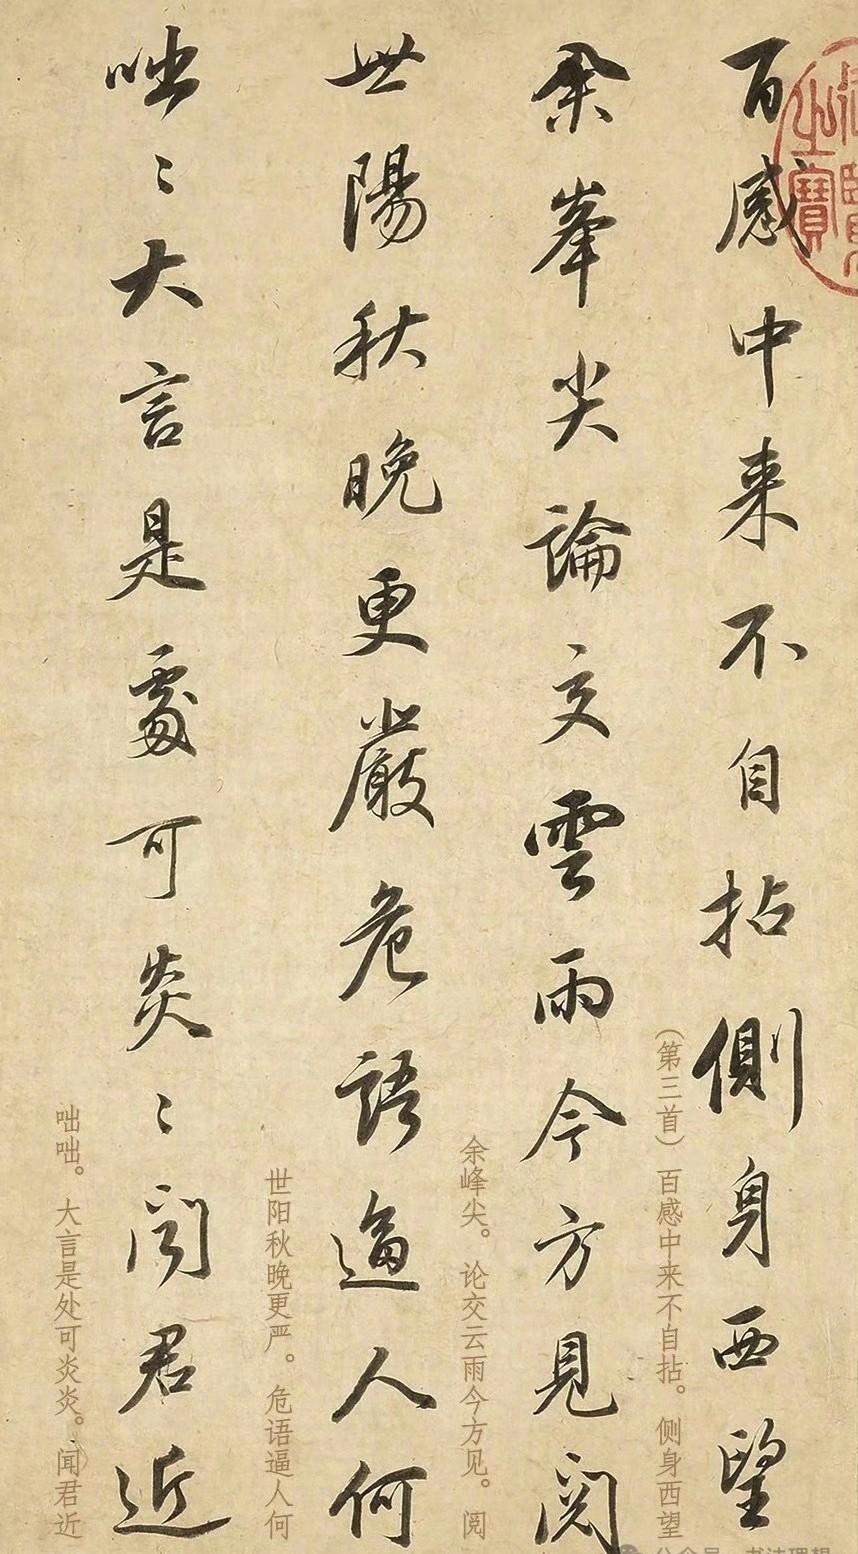 百感中来不自拈側身西望
（第三首） 百感中来不自拈。 侧身西望
余峯尖論交雲雨今方見閱
余峰尖。 论交云雨今方见。 阅
世陽秋晚更嚴危語逼人何
世阳秋晚更严。 危语逼人何
咄〻大言是處可炎〻聞君近
咄咄。 大言是处可炎炎。 闻君近